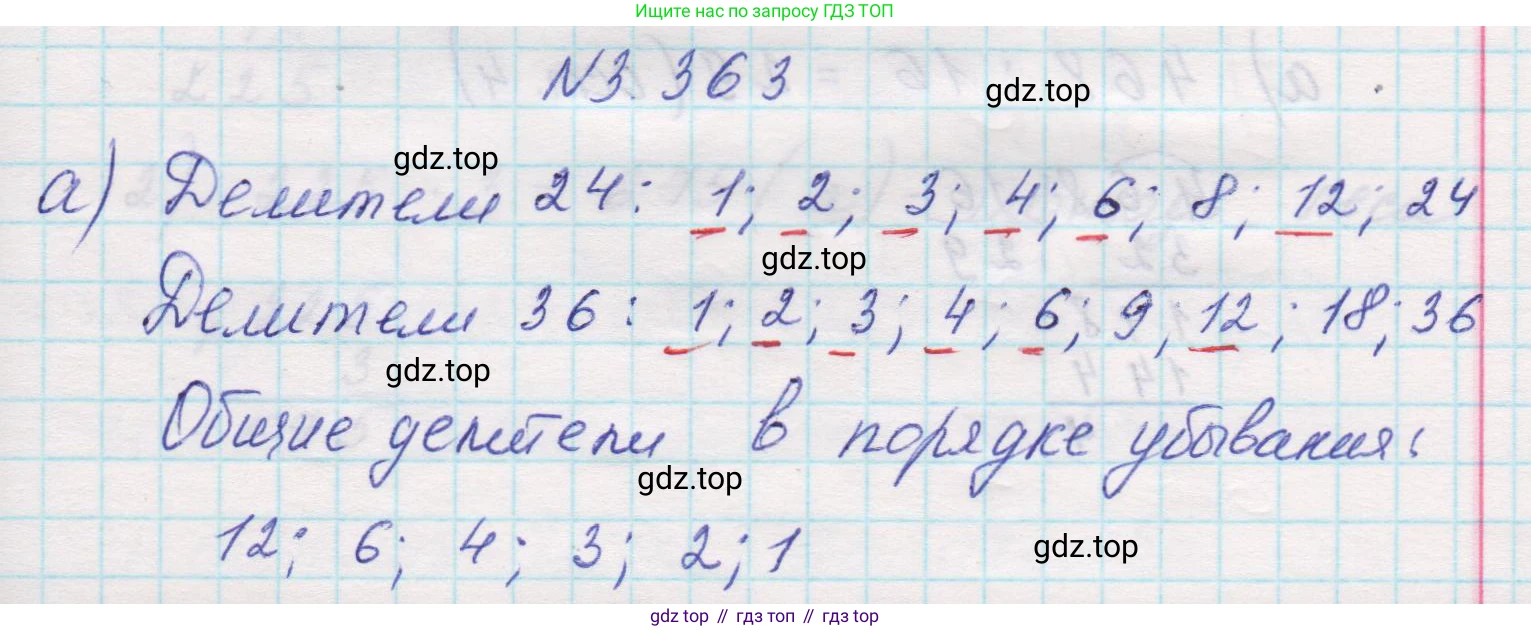 Ищите нас по запросу ГДЗ ТОП
N3.363
gdz.top
gdz.top
а) Делители 24: 1; 2; 3; 4; 6; 8; 12; 24
gdz.top
Делители 36: 1; 2; 3; 4; 6; 9; 12; 18; 36
gdz.top
Общие делители в порядке убывания:
gdz.top
12; 6; 4; 3; 2; 1
gdz.top
gdz top // гдз топ // gdz top